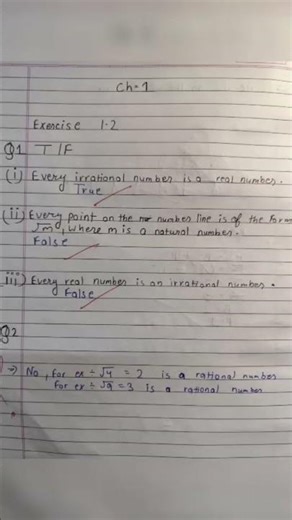 Ch-1
Exercise 1.2
Q1 T/F
(i) Every irrational number is a real number.
True
(ii) Every point on the number line is of the form
√m, where m is a natural number.
False
iii) Every real number is an irrational number.
False
Q2
→ No, for ex - √4 = 2 is a rational number
For ex ÷ √9 = 3 is a rational number